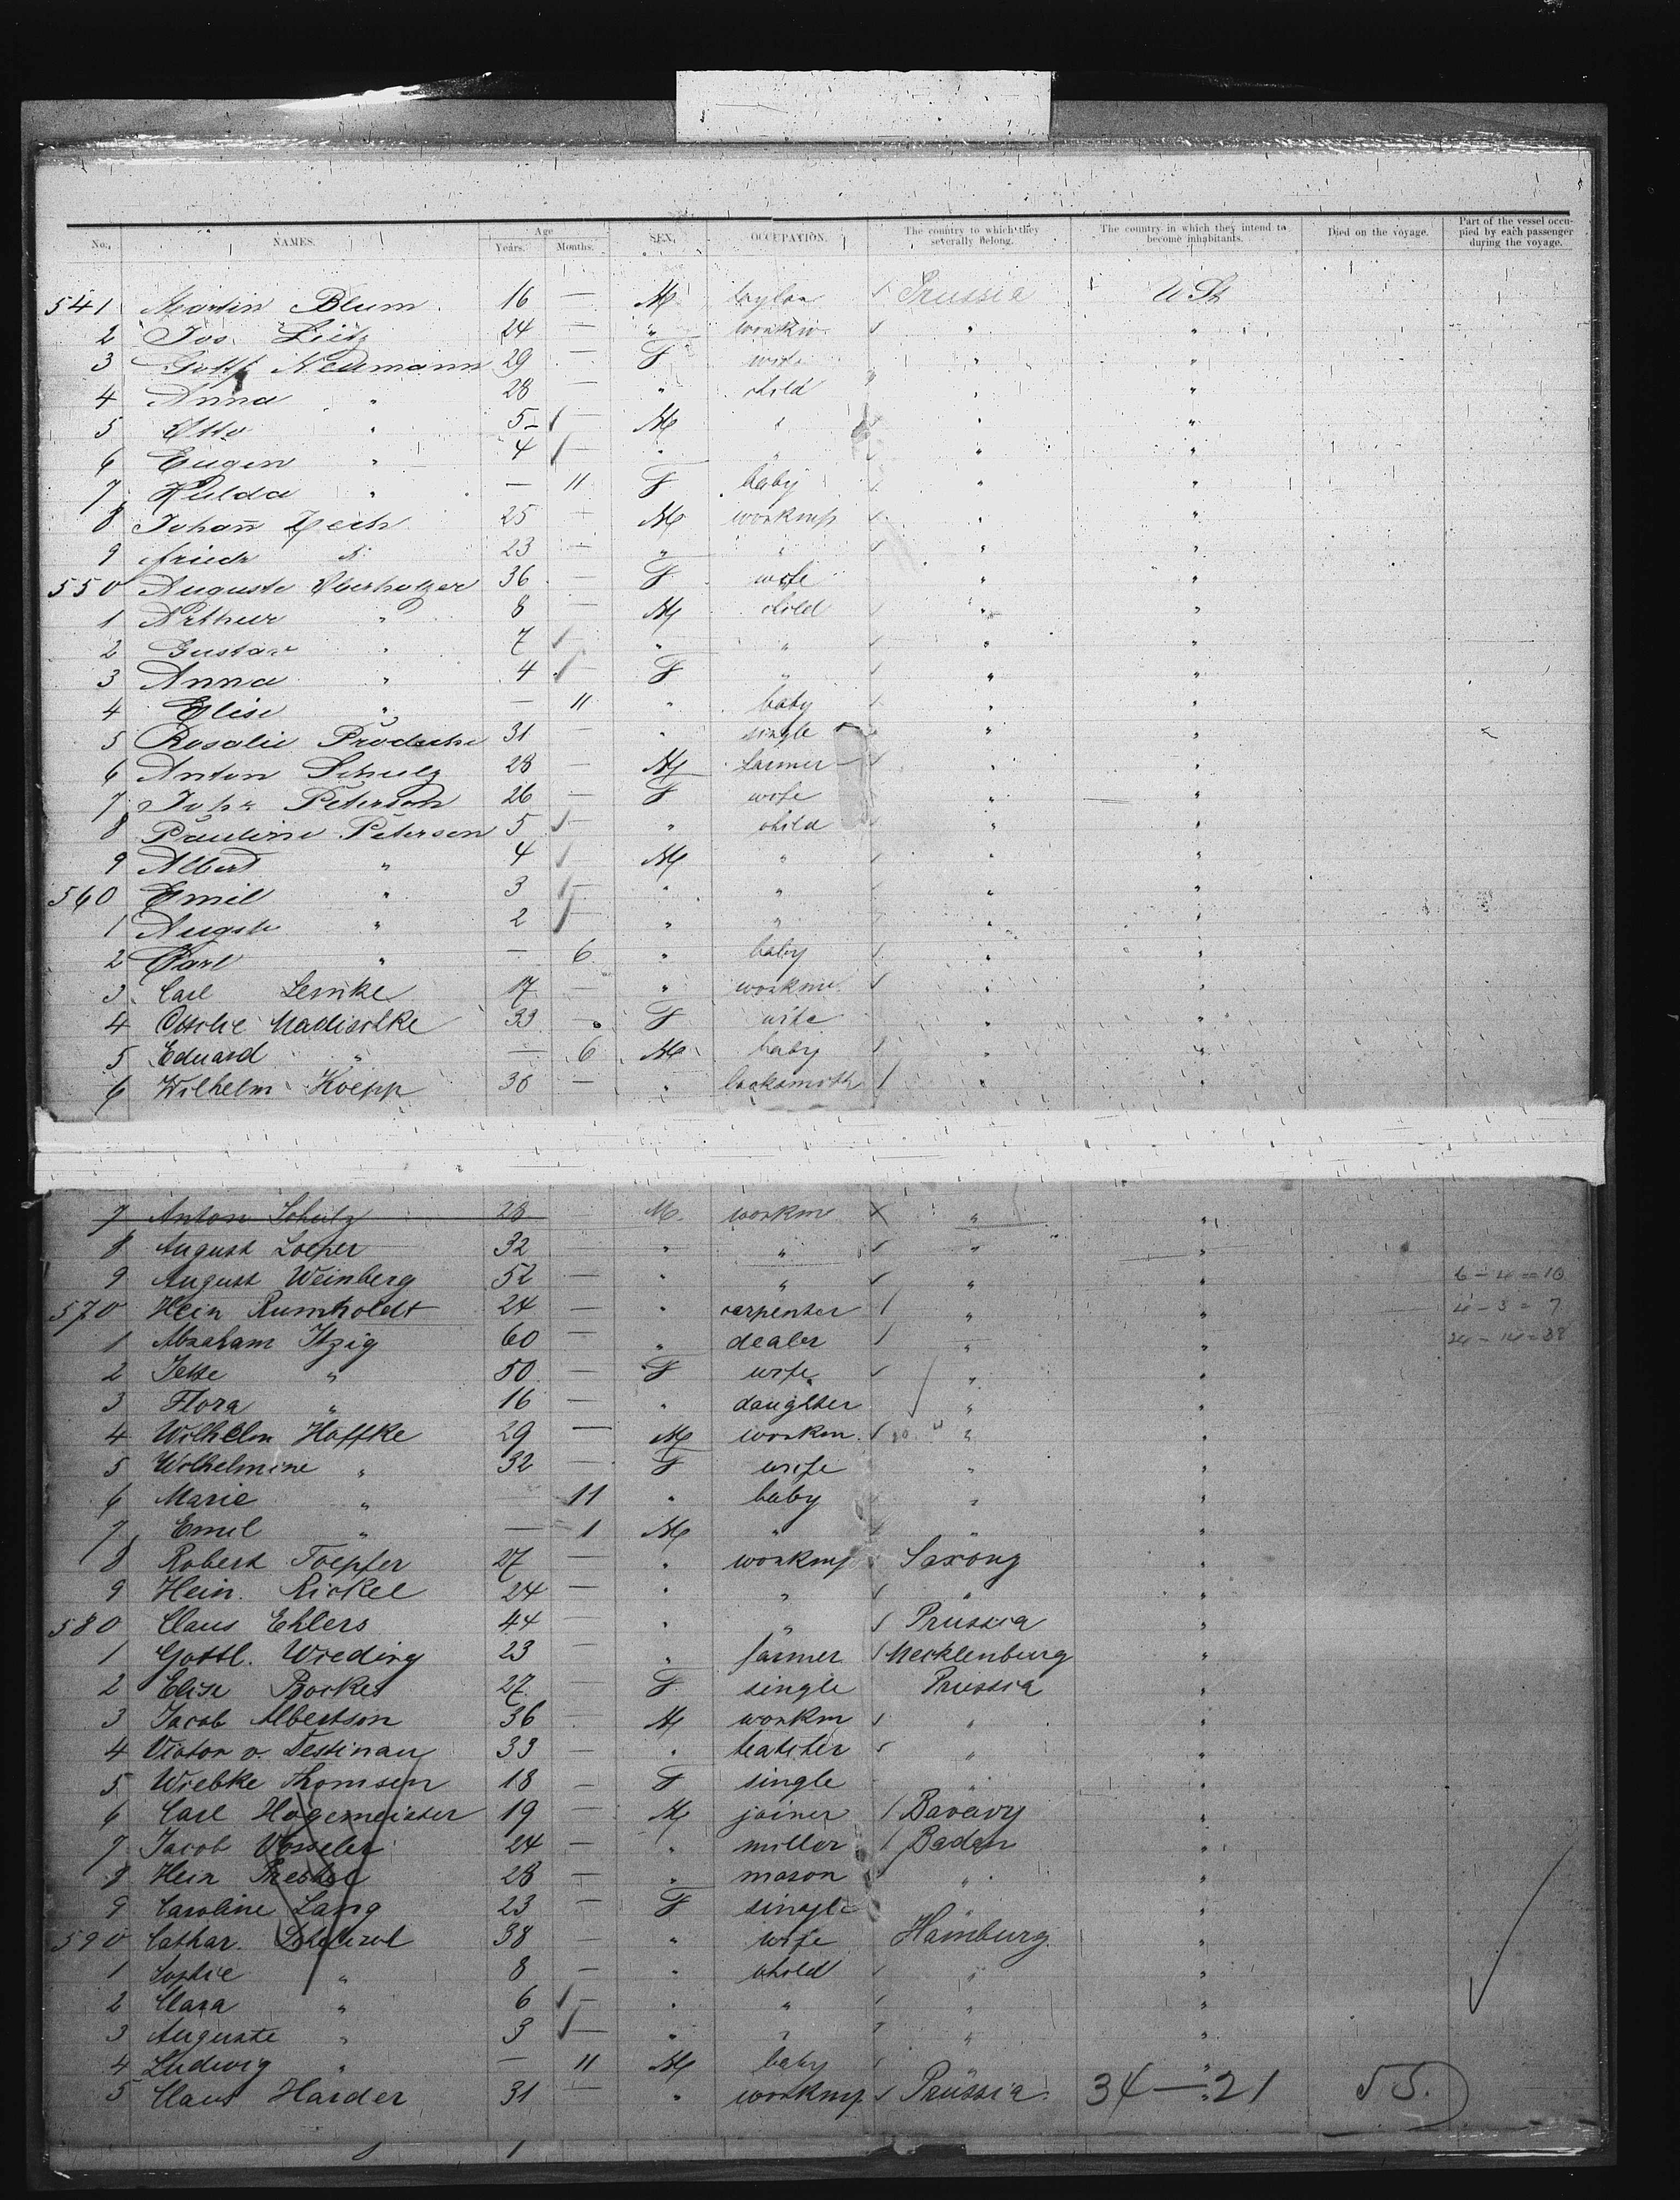 No. NAMES. Age Years. Months. SEX. OCCUPATION. The country to which they severally belong. The country in which they intend to become inhabitants. Died on the voyage. Part of the vessel occupied by each passenger during the voyage.
541 Martin Blum 16 — M Prussia U St
2 Jos. 24 — " "  "
3 Gottf Neumann 29 — F wife " "
4 Anna " 28 — " child " "
5 Otto " 5 — M " " "
6 Eugen " 4 — " " " "
7 Hulda " — 11 F baby " "
8 Johañ Zech 25 — M workmp " "
9 Friedr " 23 — " " " "
550 Auguste 36 — F wife " "
1 Arthur " 8 — M child " "
2 Gustav " 7 — " " " "
3 Anna " 4 — F " " "
4 Elise " — 11 " baby " "
5 Rosalie 31 — " single " "
6 Anton Schulz 28 — M farmer " "
7 Joh's Peterson 26 — F wife " "
8 Pauline Petersen 5 — " child " "
9 Albert " 4 M " " "
560 Emil " 3 — " " " "
1 Augste " 2 — " " " "
2 Carl " — 6 " baby " "
3 Carl Lemke 17 — " workmn " "
4 Madischke 33 — F wife " "
5 Eduard " — 6 M baby " "
6 Wilhelm Koepp 30 — " locksmith " "
7 Anton Schulz 28 M. workmn X " "
8 August Loeper 32 " " " "
9 August Weinberg 52 — " " " " 6 – 4 = 10
570 Hein Rumholdt 24 — " carpenter " " 4 – 3 = 7
1 Abraham Itzig 60 — " dealer " " 24 – 14 = 38
2 Jette " 50 — F wife " "
3 Flora " 16 — " daughter " "
4 Wilhelm Haffke 29 — M workm " "
5 Wilhelmine " 32 — F wife " "
6 Marie " 11 " baby " "
7 Emil " — 1 M " " "
8 Robert Toepfer 27 — " workmp Saxony "
9 Hein. Rickel 24 — " " " "
580 Claus Ehlers 44 — " " Prussia "
1 Gottl. Wreding 23 — " farmer Mecklenburg "
2 Elise 27 — F single Prussia "
3 Jacob Albertson 36 — M workm " "
4 Victor v. Destinau 33 — " teatcher " "
5 Wiebke Thomsen 18 — F single " "
6 Carl Hagemeister 19 — M joiner Bavary "
7 Jacob Vosseler 24 — " miller Baden "
8 Hein 28 — " mason " "
9 Caroline Lang 23 — F single " "
590 Cathar. 38 — " wife Hamburg "
1 Sophie " 8 — " child " "
2 Clara " 6 — " " " "
3 Auguste " 3 — " " " "
4 Ludwig " — 11 M baby " "
5 Claus Harder 31 — " workmp Prussia 34 — 21 55.